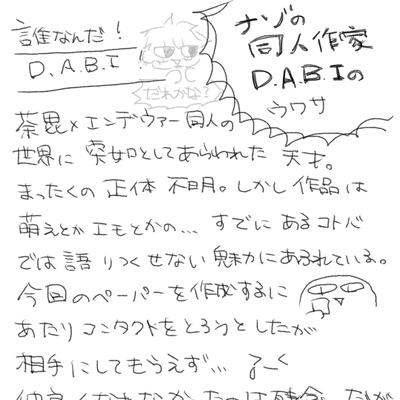 誰なんだ!
D.A.B.I
だれかな?
ナゾの
同人作家
D.A.B.Iの
ウワサ
荼毘×エンデヴァー同人の
世界に突如としてあらわれた天才。
まったくの正体不明。しかし作品は
萌えとかエモとかの…すでにあるコトバ
では語りつくせない魅力にあふれている。
今回のペーパーを作成するに
あたりコンタクトをとろうとしたが
相手にしてもらえず…